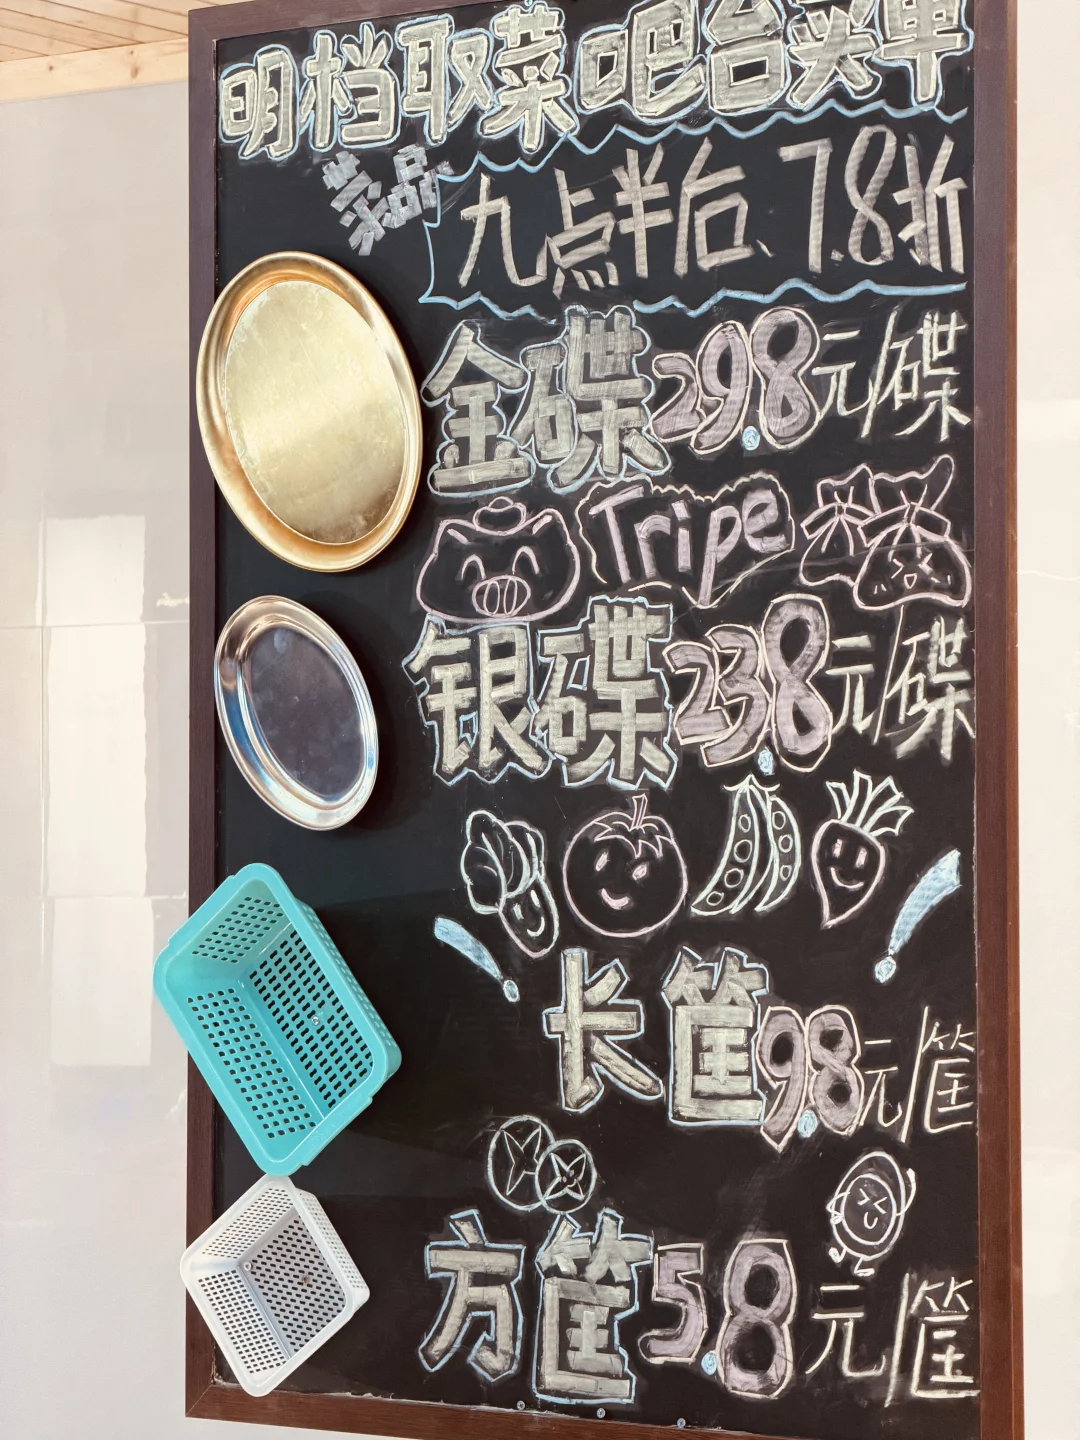 明档取菜 吧台买单
菜品
九点半后、7.8折
金碟29.8元/碟
Tripe
银碟23.8元/碟
长筐9.8元/筐
方筐5.8元/筐